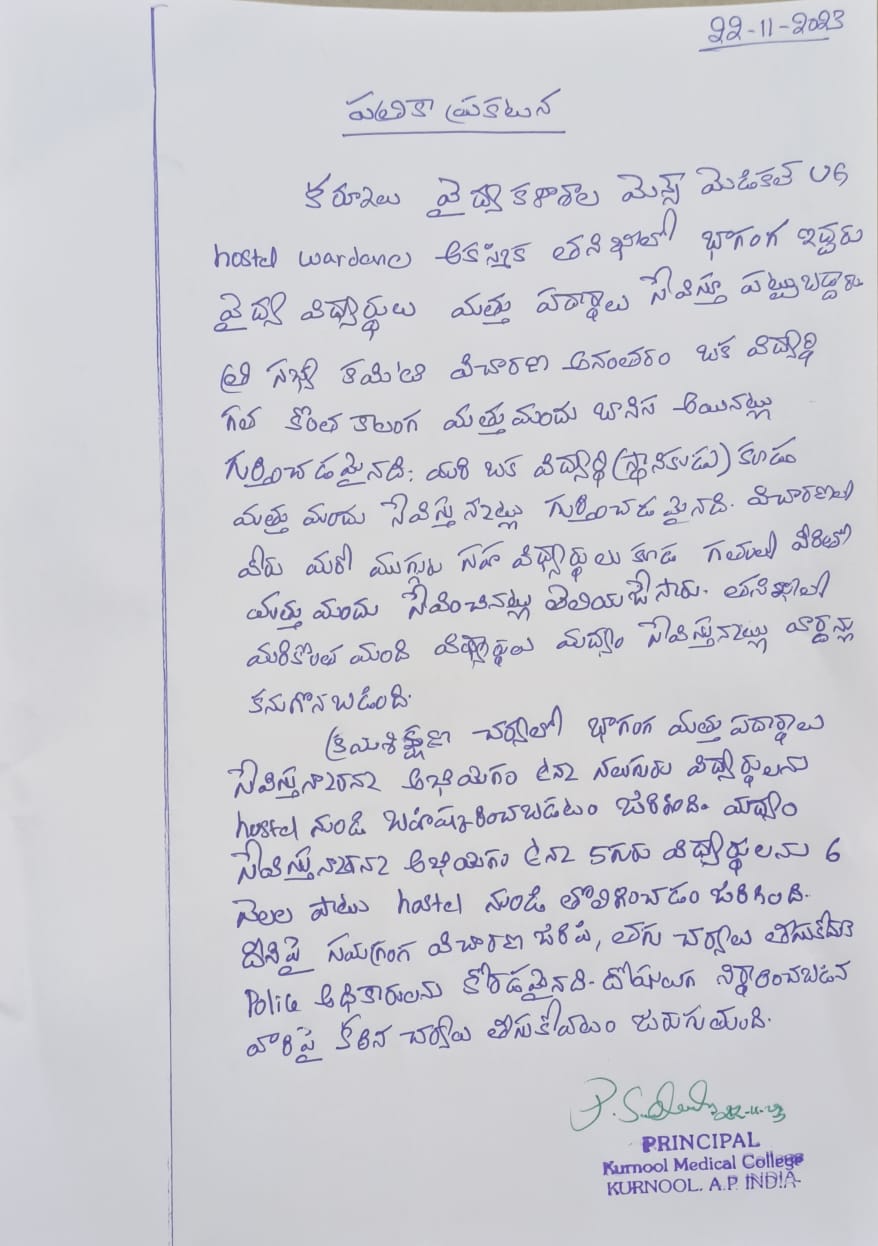 22-11-2023
పత్రికా ప్రకటన
కర్నూలు వైద్య కళాశాల మెన్స్ మెడికల్ UG
hostel wardenల ఆకస్మిక తనిఖీలో భాగంగ ఇద్దరు
వైద్య విద్యార్థులు మత్తు పదార్థాలు సేవిస్తూ పట్టుబడ్డారు.
త్రి సభ్య కమిటి విచారణ అనంతరం ఒక విద్యార్థి
గత కొంత కాలంగ మత్తు మందు బానిస అయినట్లు
గుర్తించడమైనది; మరి ఒక విద్యార్థి (స్థానికుడు) కూడా
మత్తు మందు సేవిస్తున్నట్లు గుర్తించడమైనది. విచారణలో
వీరు మరో ముగ్గురు సహ విద్యార్థులు కూడ గతంలో వీరితో
మత్తు మందు సేవించినట్లు తెలియజేసారు. తనిఖీలో
మరికొంత మంది విద్యార్థులు మద్యం సేవిస్తున్నట్లు వార్డన్లు
కనుగొనబడింది.
క్రమశిక్షణ చర్యలో భాగంగ మత్తు పదార్థాలు
సేవిస్తున్నారన్న అభియోగం ఉన్న నలుగురు విద్యార్థులను
hostel నుండి బహిష్కరించబడటం జరిగింది. మద్యం
సేవిస్తున్నారన్న అభియోగం ఉన్న 5గురు విద్యార్థులను 6
నెలల పాటు hostel నుండి తొలిగించడం జరిగింది.
దీనిపై సమగ్రంగ విచారణ జరిపి, తగు చర్యలు తీసుకోవాలని
Police అధికారులను కోరడమైనది. దోషులుగ నిర్ధారించబడిన
వారిపై కఠిన చర్యలు తీసుకోవటం జరుగుతుంది.
22-11-23
PRINCIPAL
Kurnool Medical College
KURNOOL. A.P. INDIA.